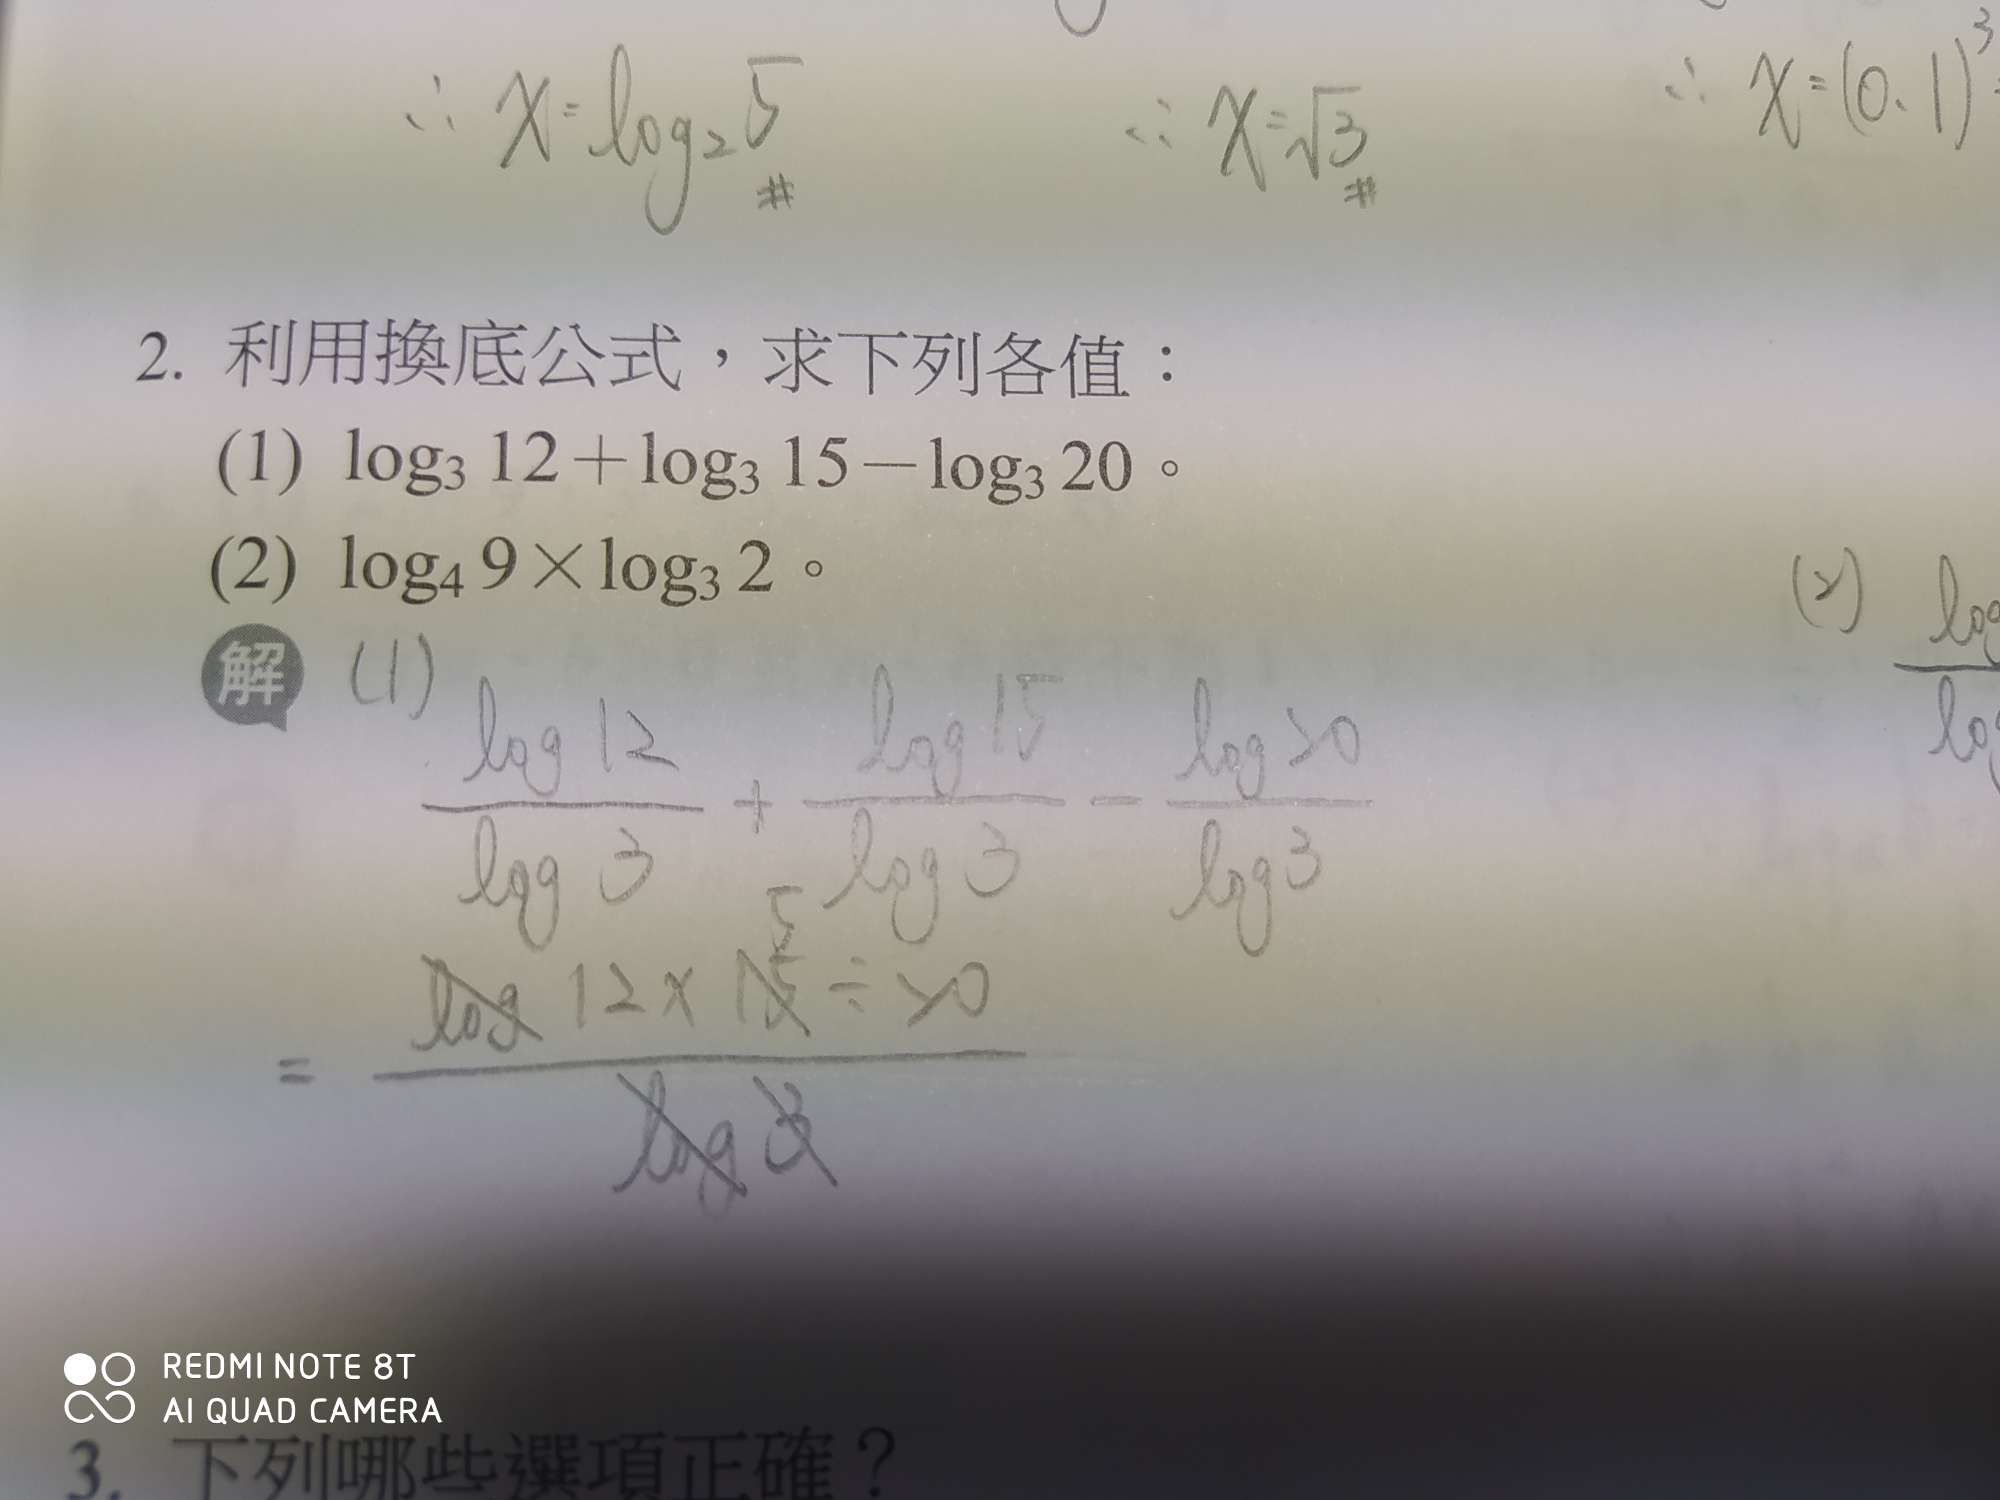 ∴ x=log₂5 # ∴ x=√3 # ∴ x=(0.1)³
2. 利用換底公式，求下列各值：
(1) log₃ 12＋log₃ 15－log₃ 20。
(2) log₄ 9×log₃ 2。
解 (1) log 12 / log 3 + log 15 / log 3 - log 20 / log 3
(2) log / log
5
= log 12 × 15 ÷ 20 / log 3
REDMI NOTE 8T
AI QUAD CAMERA
3. 下列哪些選項正確？